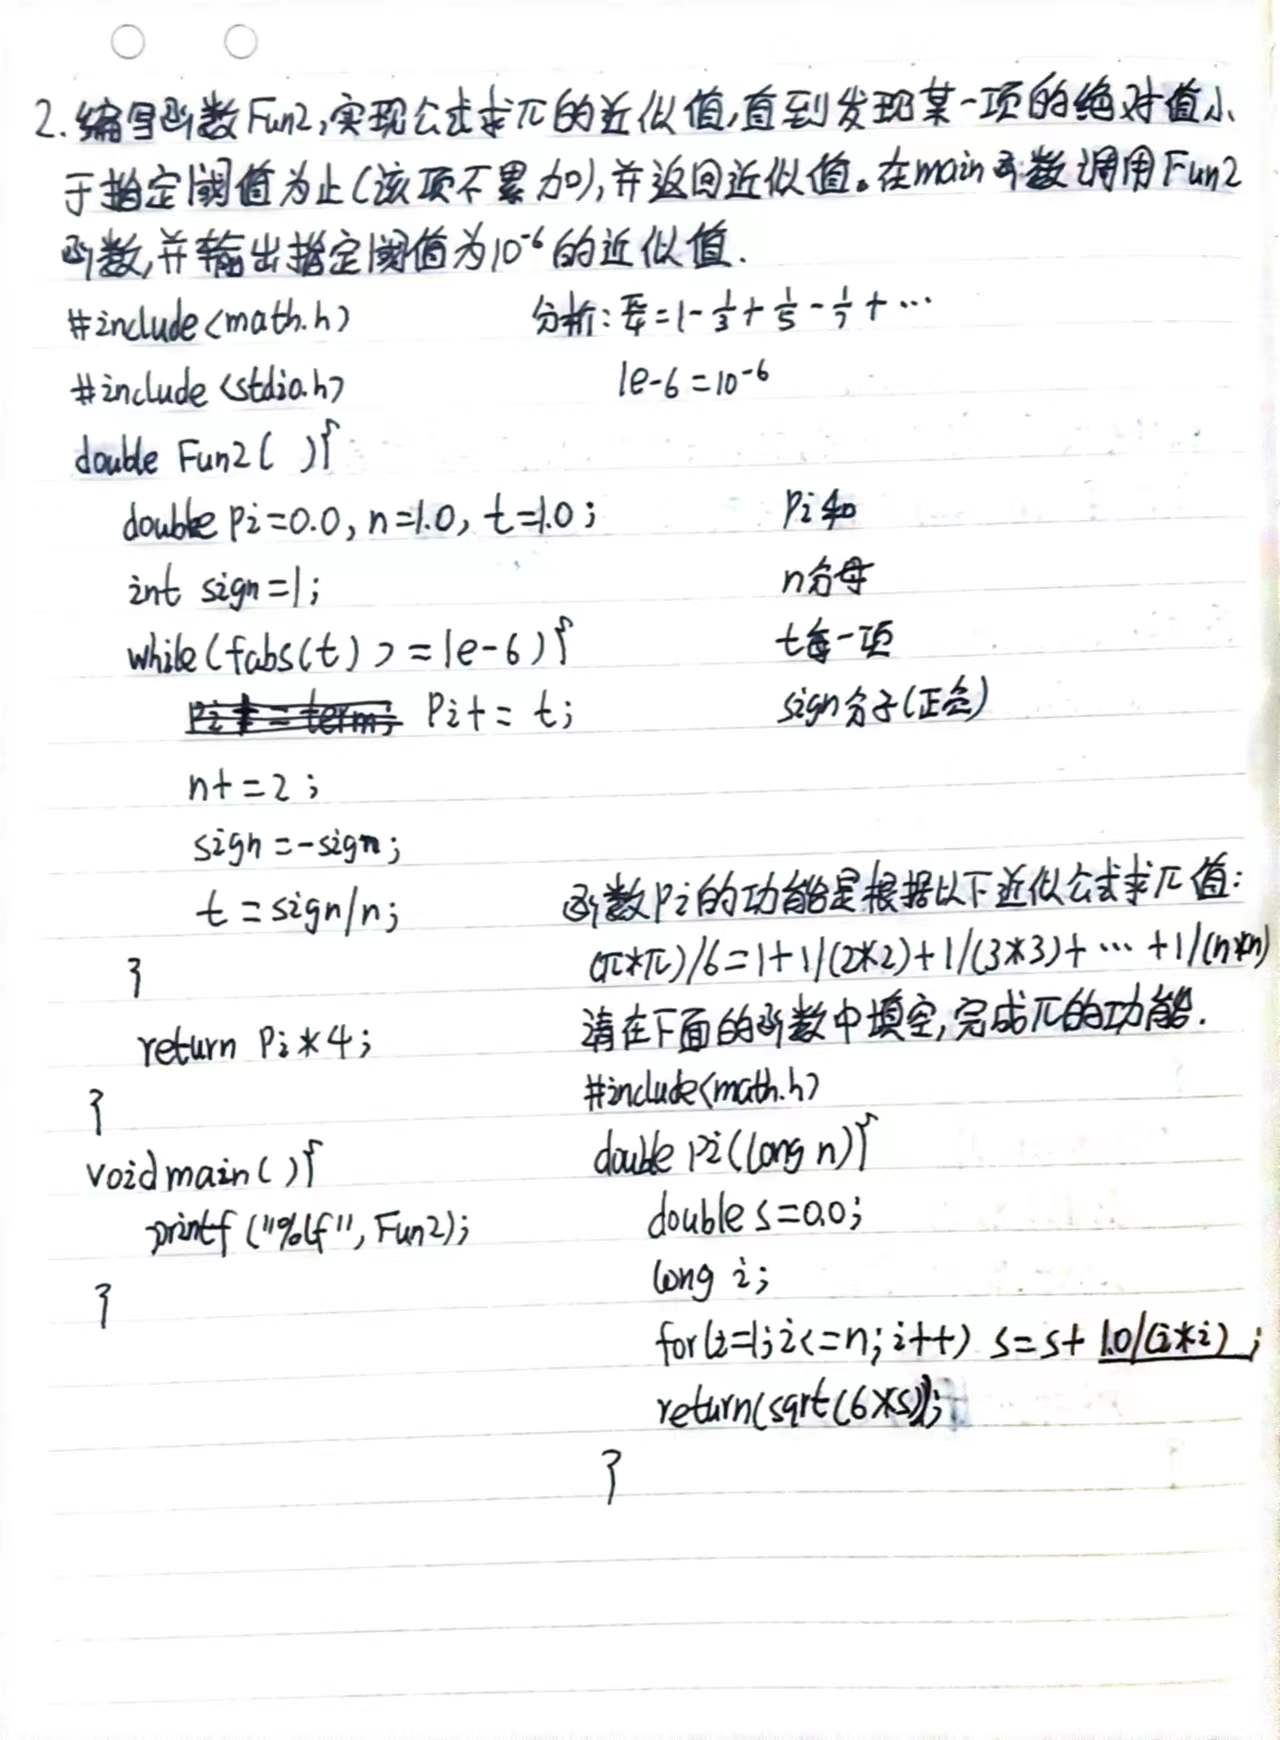 2.编写函数Fun2,实现公式求π的近似值,直到发现某一项的绝对值小
于指定阈值为止(该项不累加),并返回近似值。在main函数调用Fun2
函数,并输出指定阈值为10⁻⁶的近似值.
#include<math.h>
分析:π/4=1-1/3+1/5-1/7+…
#include<stdio.h>
1e-6=10⁻⁶
double Fun2( ){
double Pi=0.0, n=1.0, t=1.0;
Pi和
int sign=1;
n分母
while(fabs(t)>=1e-6){
t每一项
Pi+=t;
sign分子(正负)
n+=2;
sign=-sign;
t=sign/n;
}
return Pi*4;
}
void main( ){
printf("%lf", Fun2);
}
函数Pi的功能是根据以下近似公式求π值:
(π*π)/6=1+1/(2*2)+1/(3*3)+…+1/(n*n)
请在下面的函数中填空,完成π的功能.
#include<math.h>
double Pi(long n){
double s=0.0;
long i;
for(i=1;i<=n;i++) s=s+1.0/(i*i);
return(sqrt(6*s));
}